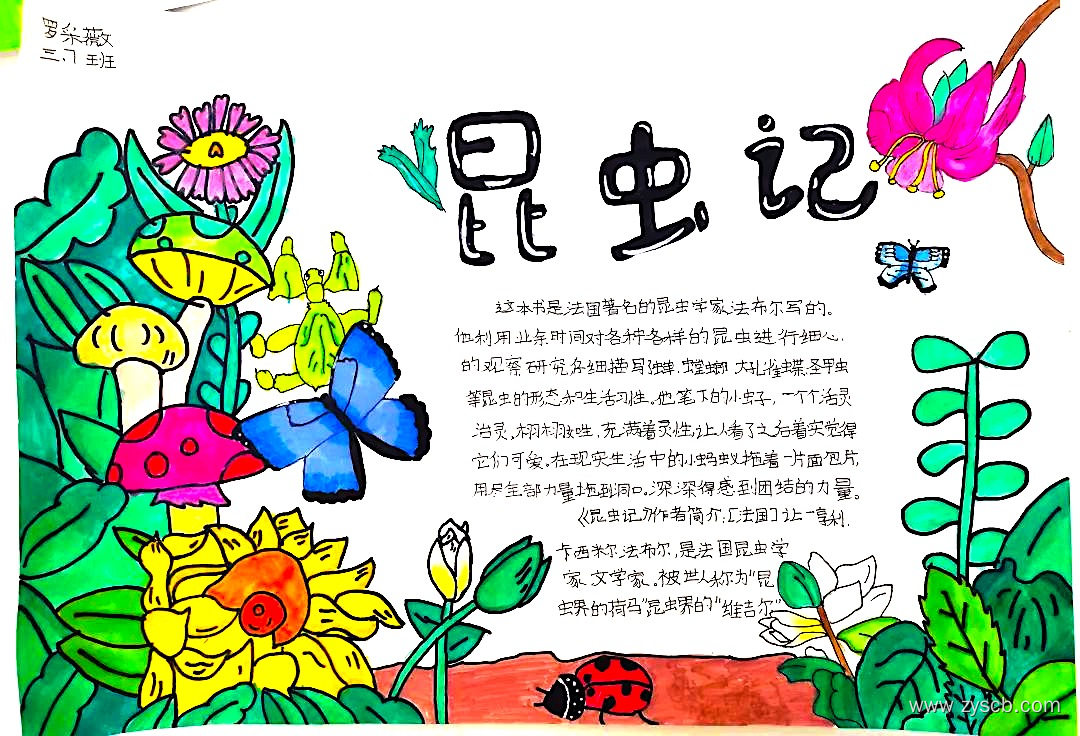 罗采薇
三.7班
昆虫记
这本书是法国著名的昆虫学家法布尔写的。
他利用业余时间对各种各样的昆虫进行细心
的观察研究,详细描写蝉、螳螂、大孔雀蝶、圣甲虫
等昆虫的形态和生活习性。他笔下的小虫子,一个个活灵
活灵,栩栩如生,充满着灵性,让人看了之后着实觉得
它们可爱。在现实生活中的小蚂蚁,拖着一片面包片,
用尽全部力量拖到洞口。深深得感到团结的力量。
《昆虫记》作者简介:[法国]让一亨利.
卡西米尔法布尔,是法国昆虫学
家,文学家。被世人称为"昆
虫界的荷马"昆虫界的"维吉尔"
www.zyscb.com